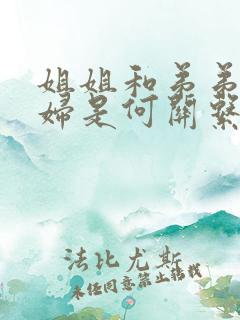 姐姐和弟弟
婦是何關繫
法比尤斯
未经同意禁止转载